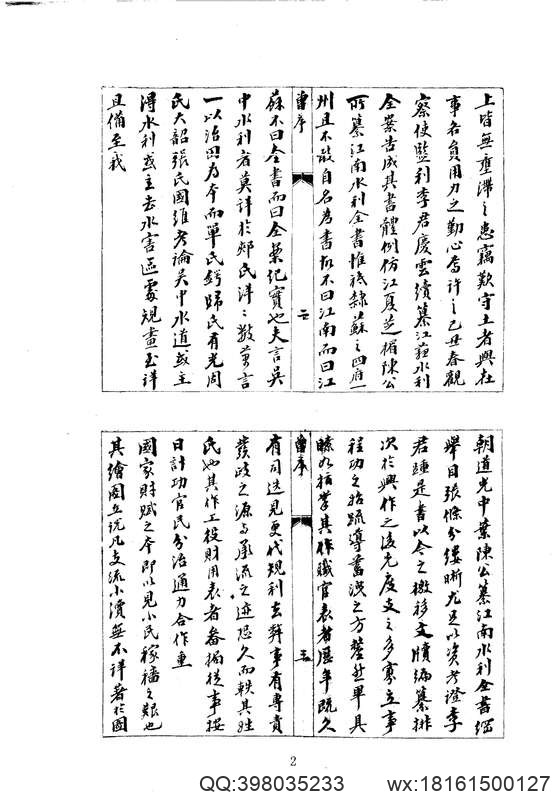 上皆無壅滯之患竊歎守土者與在
事各員用力之勤心焉許之己丑春觀
察使監利李君慶雲續纂江蘇水利
全案告成其書體例仿江夏芝楣陳公
所纂江南水利全書惟祗隸蘇之四府一
州且不敢自名為書故不曰江南而曰江
曾序
二
蘇不曰全書而曰全案紀實也夫言吳
中水利者莫詳於郟氏洋洋數萬言
一以治田為本而單氏鍔歸氏有光周
氏大韶張氏國維考論吳中水道或主
得水利或主去水害區處規畫至詳
且備至我
朝道光中葉陳公纂江南水利全書綱
舉目張條分縷晰尤足以資考證李
君踵是書以今之檄移文牘編纂排
次於興作之後先度支之多寡立事
程功之始疏導蓄洩之方釐然畢具
瞭如指掌其作職官表者歷年既久
曾序
三
有司迭見更代規利去弊事有專責
發政之源與承流之迹恐久而軼其姓
氏也其作工段財用表者畚挶從事按
日計功官民分治通力合作重
國家財賦之本即以見小民稼穡之艱也
其繪圖立說凡支流小瀆無不詳著於圖
2
QQ:398035233
wx:18161500127